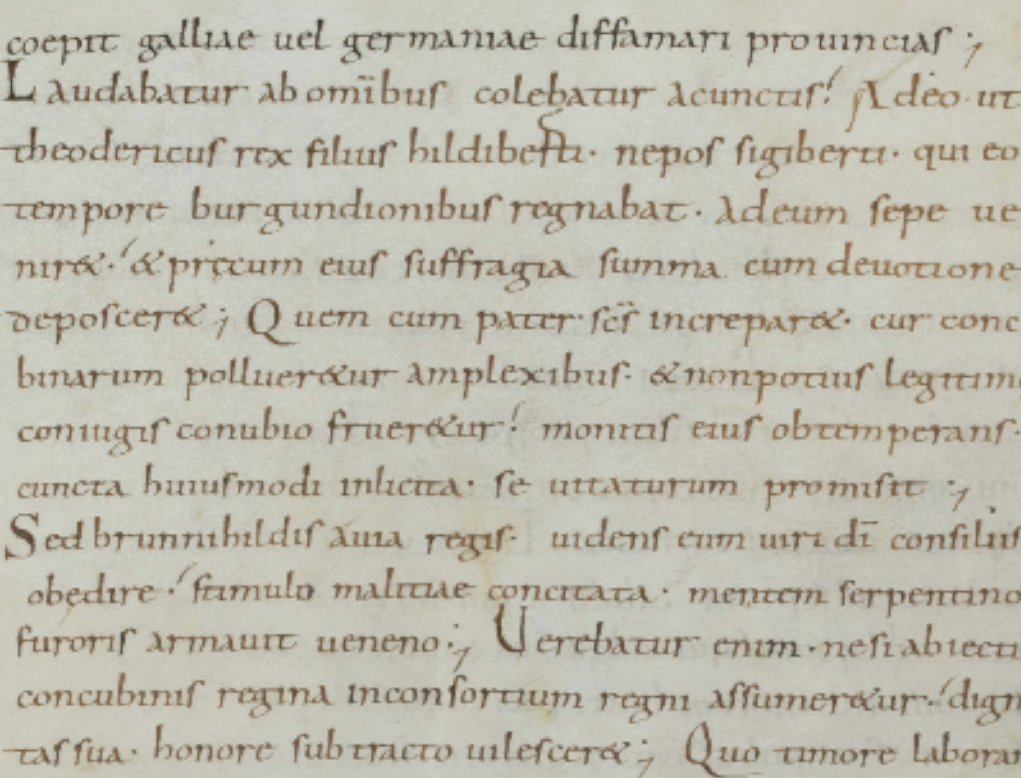 coepit galliae uel germaniae diffamari prouincias ;,
Laudabatur ab omĩbus colebatur acunctis! Adeo ut
theodericus rex filius hildiberti · nepos sigiberti · qui eo
tempore burgundionibus regnabat · Adeum sepe ue
nir& · & pręcum eius suffragia summa cum deuotione
deposcer& ; Quem cum pater sc̄s increpar& · cur conc
binarum polluer&ur amplexibus · & nonpotius legitim
coniugis conubio fruer&ur! monitis eius obtemperans ·
cuncta huiusmodi inlicita · se uitaturum promisit ;,
Sed brunnihildis auia regis · uidens eum uiri dī consiliis
obędire · stimulo malitiae concitata · mentem serpentino
furoris armauit ueneno ;, Uerebatur enim · ne si abiecti
concubinis regina inconsortium regni assumer&ur · dign
tas sua · honore subtracto uilescer& ; Quo timore laboran